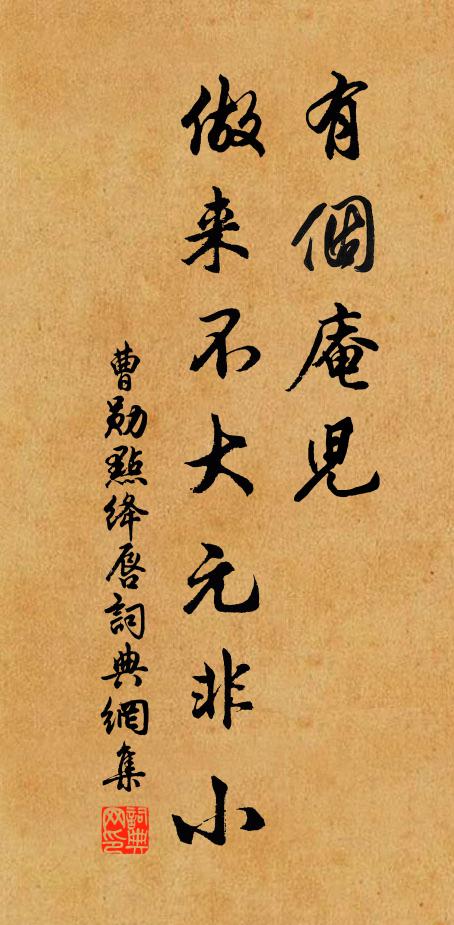 有個庵兒
做来不大元非小
曹勛點絳唇詞典網集
詞典网印